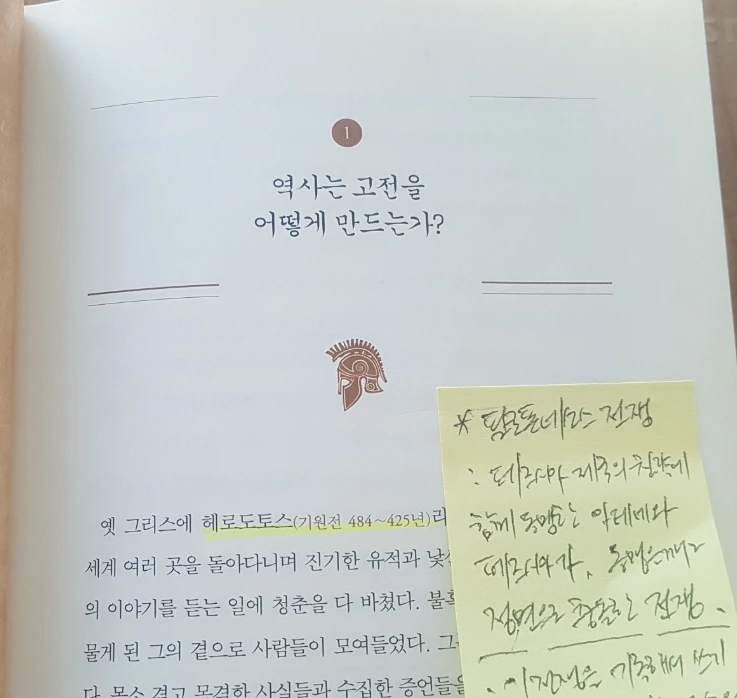 1
역사는 고전을
어떻게 만드는가?
옛 그리스에 헤로도토스(기원전 484~425년)라
세계 여러 곳을 돌아다니며 진기한 유적과
의 이야기를 듣는 일에 청춘을 다 바쳤다.
물게 된 그의 곁으로 사람들이 모여들었다. 그
다 몸소 겪고 목격한 사실들과 수집한 증언들을
* 펠로폰네소스 전쟁
: 페르시아 제국의 침략에
함께 동맹한 아테네와
동맹을 깨고
정면으로 충돌한 전쟁.
. 이 전쟁을 기록해서 쓰기